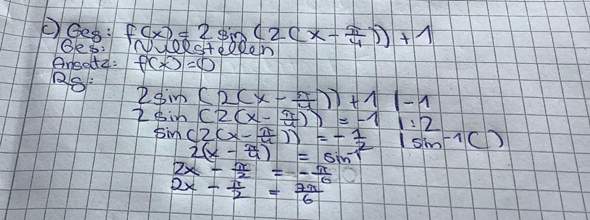 c) Geg: f(x) = 2 sin (2(x - π/4)) + 1
Ges: Nullstellen
Ansatz: f(x) = 0
Rg:
2 sin (2(x - π/4)) + 1 | -1
2 sin (2(x - π/4)) = -1 | :2
sin (2(x - π/4)) = -1/2 | sin⁻¹()
2(x - π/4) = sin⁻¹
2x - π/2 = -π/6
2x - π/2 = 7π/6